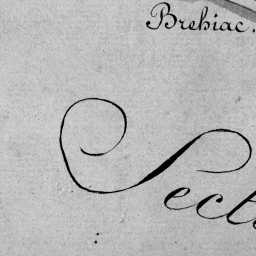 Brehiac.
Sect